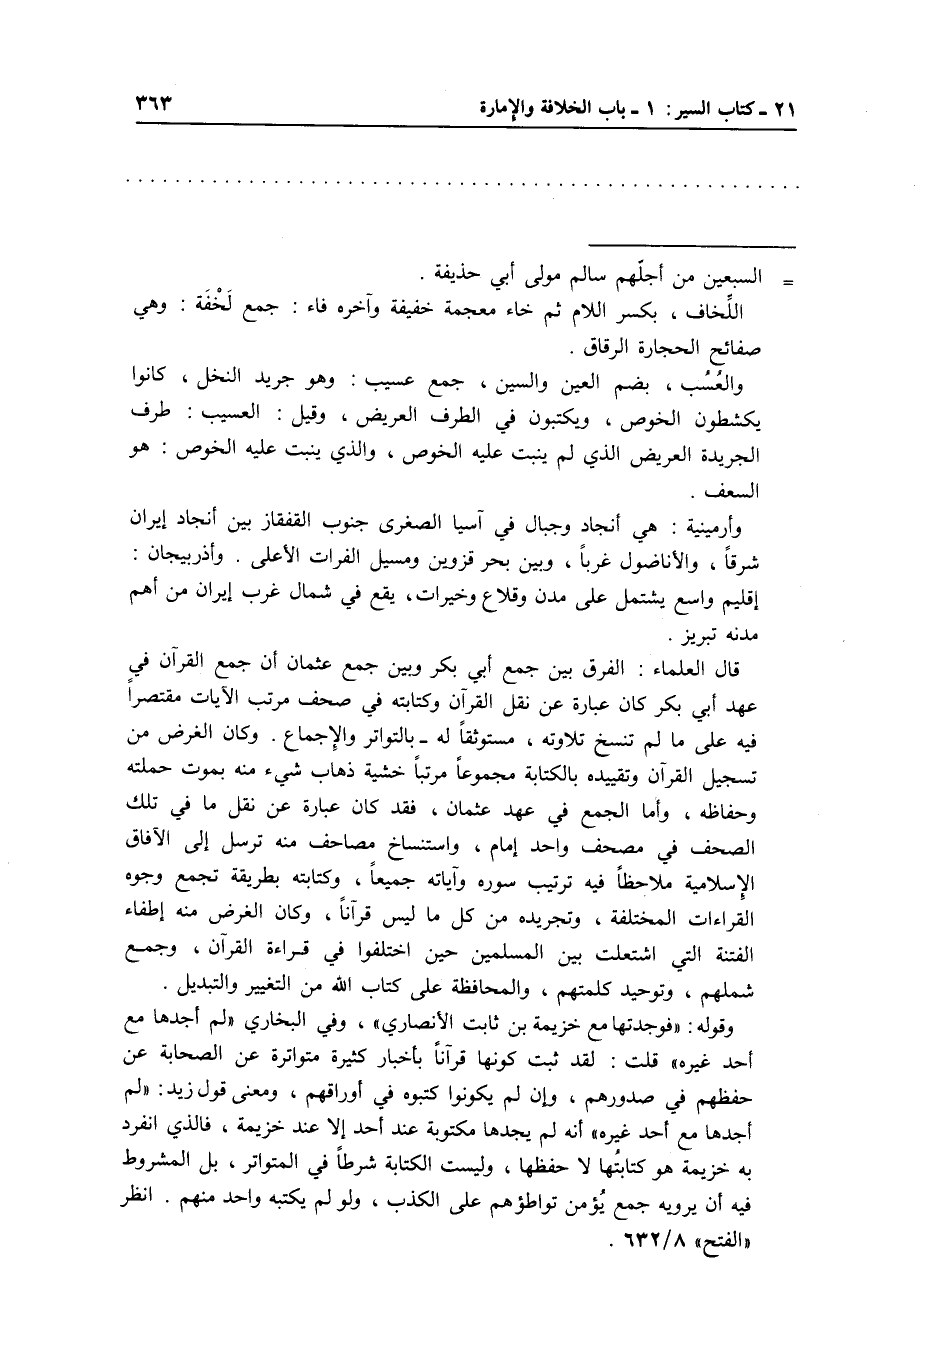 ٢١ ـ كتاب السير : ١ ـ باب الخلافة والإمارة ٣٦٣
= السبعين من أجلّهم سالم مولى أبي حذيفة .
اللِّخاف ، بكسر اللام ثم خاء معجمة خفيفة وآخره فاء : جمع لَخْفَة : وهي
صفائح الحجارة الرقاق .
والعُسُب ، بضم العين والسين ، جمع عسيب : وهو جريد النخل ، كانوا
يكشطون الخوص ، ويكتبون في الطرف العريض ، وقيل : العسيب : طرف
الجريدة العريض الذي لم ينبت عليه الخوص ، والذي ينبت عليه الخوص : هو
السعف .
وأرمينية : هي أنجاد وجبال في آسيا الصغرى جنوب القفقاز بين أنجاد إيران
شرقاً ، والأناضول غرباً ، وبين بحر قزوين ومسيل الفرات الأعلى . وأذربيجان :
إقليم واسع يشتمل على مدن وقلاع وخيرات، يقع في شمال غرب إيران من أهم
مدنه تبريز .
قال العلماء : الفرق بين جمع أبي بكر وبين جمع عثمان أن جمع القرآن في
عهد أبي بكر كان عبارة عن نقل القرآن وكتابته في صحف مرتب الآيات مقتصراً
فيه على ما لم تنسخ تلاوته ، مستوثقاً له ـ بالتواتر والإجماع . وكان الغرض من
تسجيل القرآن وتقييده بالكتابة مجموعاً مرتباً خشية ذهاب شيء منه بموت حملته
وحفاظه ، وأما الجمع في عهد عثمان ، فقد كان عبارة عن نقل ما في تلك
الصحف في مصحف واحد إمام ، واستنساخ مصاحف منه ترسل إلى الآفاق
الإسلامية ملاحظاً فيه ترتيب سوره وآياته جميعاً ، وكتابته بطريقة تجمع وجوه
القراءات المختلفة ، وتجريده من كل ما ليس قرآناً ، وكان الغرض منه إطفاء
الفتنة التي اشتعلت بين المسلمين حين اختلفوا في قراءة القرآن ، وجمع
شملهم ، وتوحيد كلمتهم ، والمحافظة على كتاب الله من التغيير والتبديل .
وقوله : «فوجدتها مع خزيمة بن ثابت الأنصاري» ، وفي البخاري «لم أجدها مع
أحد غيره» قلت : لقد ثبت كونها قرآناً بأخبار كثيرة متواترة عن الصحابة عن
حفظهم في صدورهم ، وإن لم يكونوا كتبوه في أوراقهم ، ومعنى قول زيد: «لم
أجدها مع أحد غيره» أنه لم يجدها مكتوبة عند أحد إلا عند خزيمة ، فالذي انفرد
به خزيمة هو كتابتُها لا حفظها ، وليست الكتابة شرطاً في المتواتر ، بل المشروط
فيه أن يرويه جمع يُؤمن تواطؤهم على الكذب ، ولو لم يكتبه واحد منهم . انظر
«الفتح» ٦٣٢/٨ .